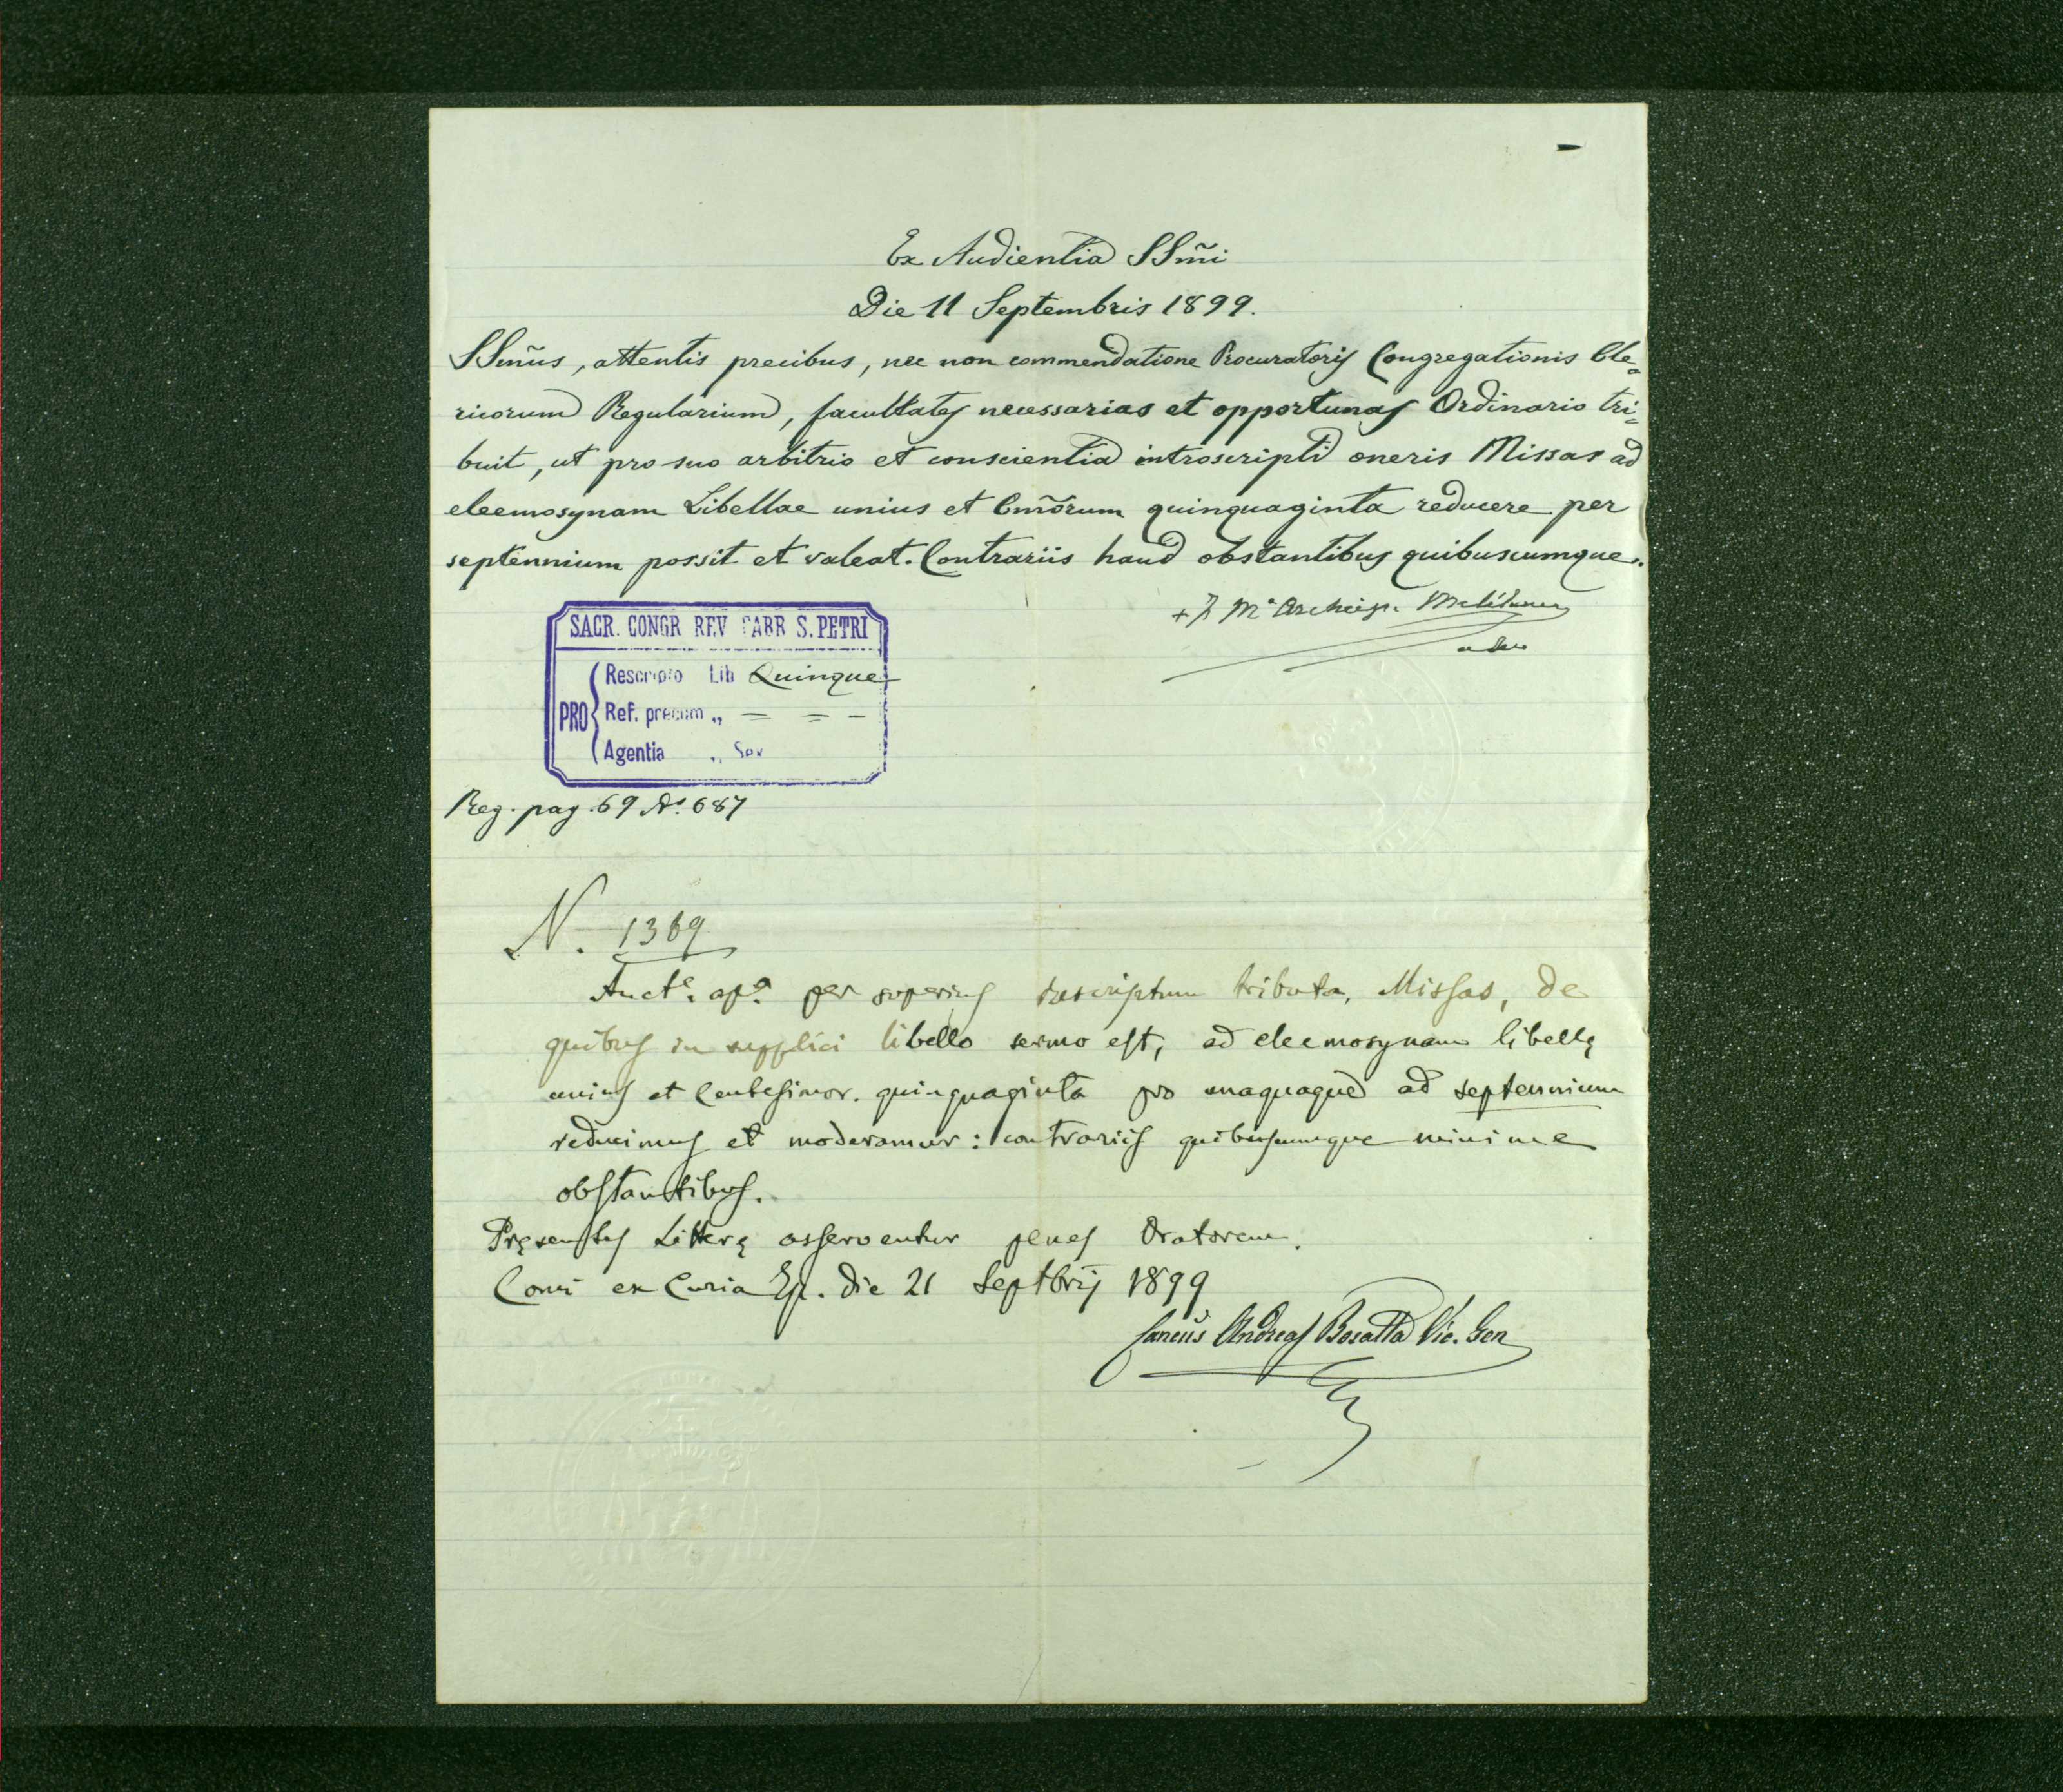 Ex Audientia SSm̃i
Die 11 Septembris 1899.
SSm̃us, attentis precibus, nec non commendatione Procuratoris Congregationis Cle=
ricorum Regularium, facultates necessarias et opportunas Ordinario tri=
buit, ut pro suo arbitrio et conscientia introscripti oneris Missas ad
eleemosynam Libellae unius et Cm̃orum quinquaginta reducere per
septennium possit et valeat. Contrariis haud obstantibus quibuscumque.
SACR. CONGR REV FABR S. PETRI
PRO
Rescripto Lib Quinque
Ref. precum „ = = -
Agentia „ Sex
Reg. pag. 69 N° 687
N. 1369
Aucte. apa. per superius rescriptum tributa, Missas, de
quibus in supplici libello sermo est, ad eleemosynam libellę
unius et Centesimor. quinquaginta pro unaquaque ad septennium
reducimus et moderamur: contrariis quibuscumque minime
obstantibus.
Pręsentes Litterę asserventur penes Oratorem.
Comi ex Curia Ep. die 21 Septbris 1899
Andreas Vic. Gen